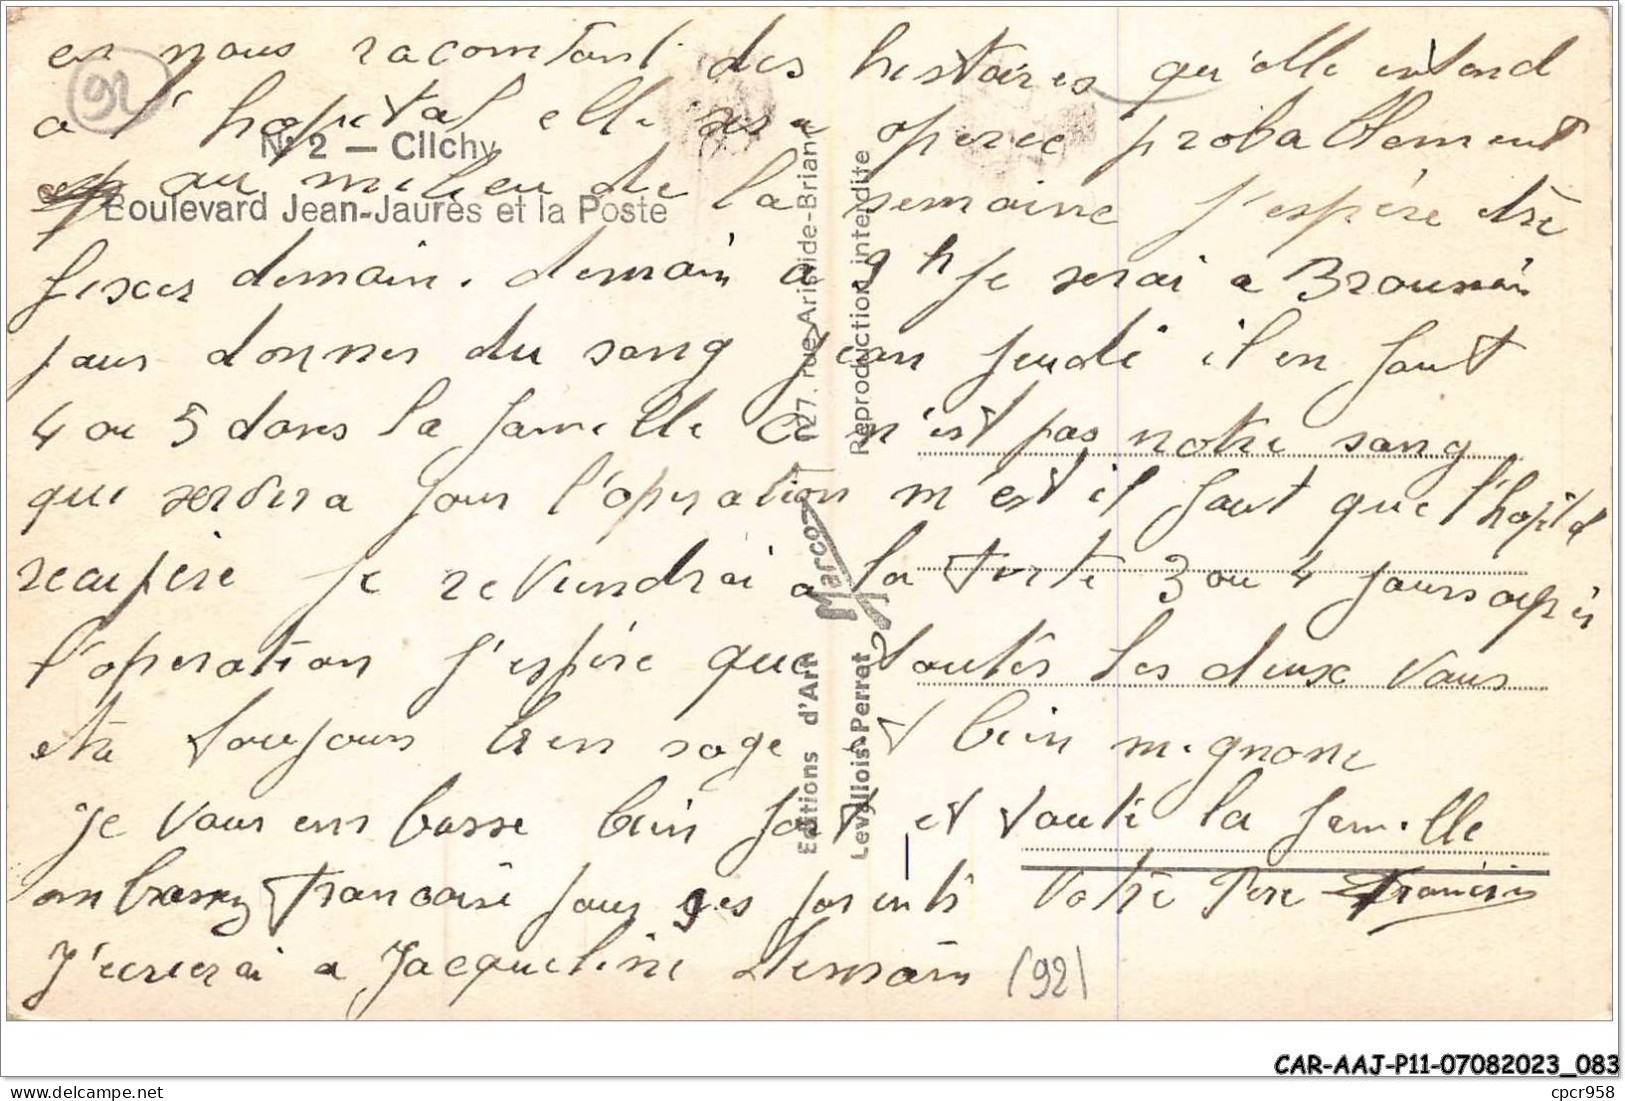 en nous racomtant des histoires qu'elle entend
a l'hopital elle sera operee probablement
au milieu de la semaine j'espère etre
fixer demain. demain a 9h je serai a Broussais
pour donner du sang jean jeudi il en faut
4 ou 5 dans la famille ce n'est pas notre sang
qui servira pour l'operation m est il faut que l'hopital
recupère je reviendrai a la Ferté 3 ou 4 jours après
l'operation j'espère que toutes les deux vous
ete toujours bien sage et bien mignone
je vous embrasse bien fort et toute la famille
embrassez Francoise pour ses parents Votre Pere Francis
J'ecrierai a Jacqueline demain (92)
92
N° 2 — Clichy
Boulevard Jean-Jaurès et la Poste
Editions d'Art Marco 127, rue Aristide-Briand
Levallois-Perret Reproduction interdite
CAR-AAJ-P11-07082023_083
www.delcampe.net
cpcr958